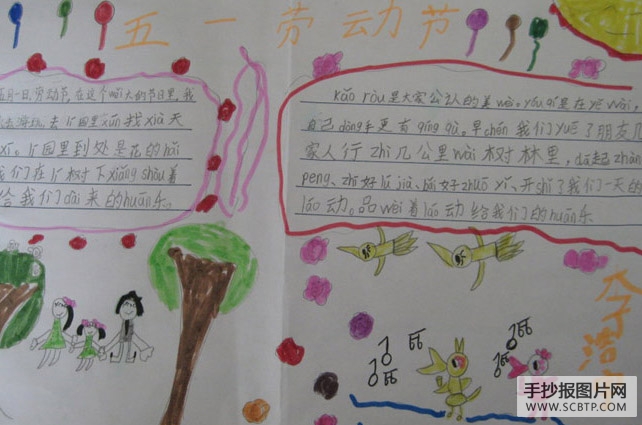 五一劳动节
五月一日,劳动节,在这个盛大的节日里,我
去海边,去公园里xún找xià天
公园里到处是花的hǎi
我们在公树下xiǎng shòu着
给我们dài来的huān乐。
kǎo ròu是大家公认的美wèi。yóu qí是在yě wài,
自己dòng手更有qíng qù。早chén我们yuē了朋友
家人行zhǐ几公里wài树林里,dā起zhàng
peng、zhī好lú jià、摆好zhuō yǐ、开shǐ了我们一天的
láo动。品wèi着láo动给我们的huān乐
手抄报图片网
WWW.SCBTP.COM